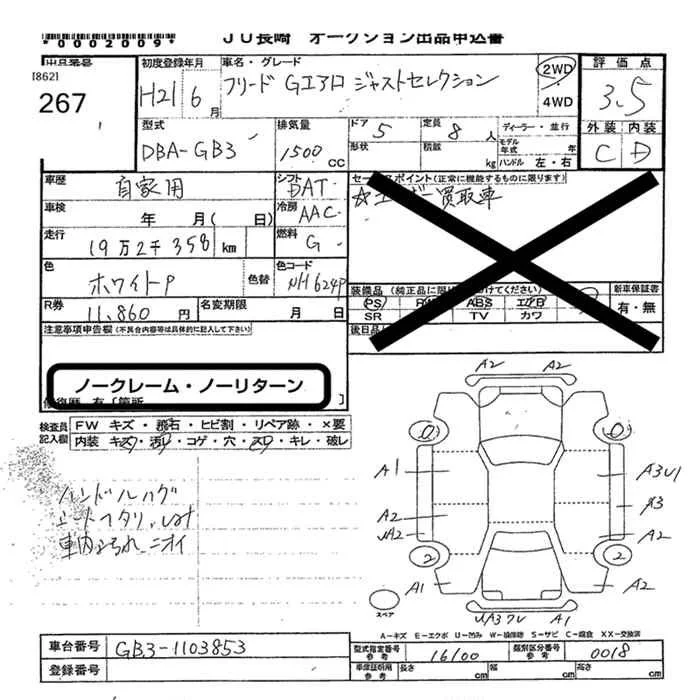 *0002009*
JU長崎 オークション出品申込書
[862]
267
初度登録年月
H21 6月
車名・グレード
フリード Gエアロ ジャストセレクション
2WD
4WD
評価点
3.5
外装 内装
C D
型式
DBA-GB3
排気量
1500 CC
ドア 5
定員 8 人
形状
積載 kg
ディーラー・並行
モデル年式 年
ハンドル 左・右
車歴
自家用
シフト
DAT
車検
年 月(日)
冷房
AAC
走行
19万2千358 km
燃料
G
色
ホワイトP
色替
色コード
NH624P
R券
11,860 円
名変期限
月 日
セールスポイント(正常に機能するものに限ります)
買取車
装備品
PS ABS
SR TV カワ
新車保証書
有・無
後日品
注意事項申告欄(不具合内容等は具体的に記入して下さい)
ノークレーム・ノーリターン
検査員記入欄
FW キズ・飛石・ヒビ割・リペア跡・×要
内装 キズ・汚レ・コゲ・穴・スレ・キレ・破レ
ハンドルハゲ
車内よごれ、ニオイ
A2 A2
A1
A3U1
A2
A2
2 2
A1
A2
A1
スペア
A-キズ E-エクボ U-凹ミ W-補修跡 S-サビ C-腐食 XX-交換済
車台番号
GB3-1103853
登録番号
型式指定番号 参考
16100
類別区分番号 参考
0018
車庫証明用 参考
長さ cm
幅 cm
高さ cm